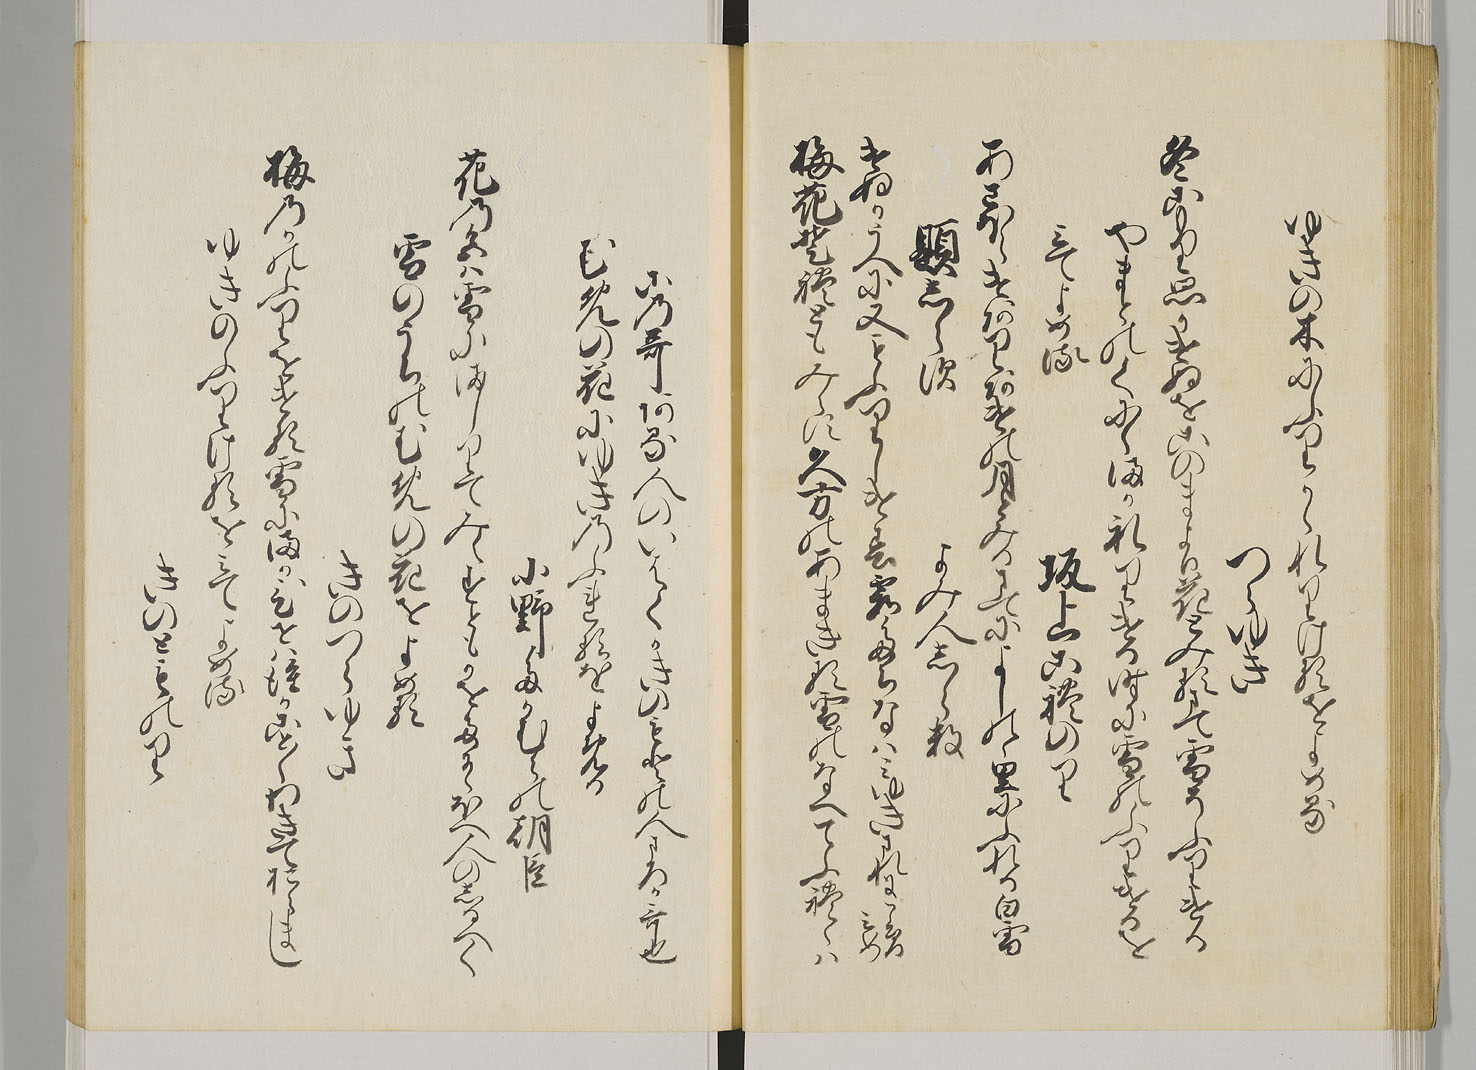 ゆきの木にふりかゝれりけるをよめる
つらゆき
冬こもり思かけぬをこのまより花とみるまて雪そふりける
やまとのくにゝまかれりける時に雪のふりけるを
みてよめる
坂上これのり
あさほらけありあけの月とみるまてによしのゝ里にふれる白雪
題しらす
よみ人しらす
けぬかうへに又もふりしけ春霞たちなはみゆきまれにこそみめ
梅花それともみえす久方のあまきる雪のなへてふれゝは
この哥ある人のいはくかきのもとの人まろか哥也
むめの花にゆきのふれるをよめる
小野たかむらの朝臣
花の色は雪にましりてみえすともかをたにゝほへ人のしるへく
雪のうちのむめの花をよめる
きのつらゆき
梅のかのふりをける雪にまかひせは誰かこと〱わきておらまし
ゆきのふりけるをみてよめる
きのとものり